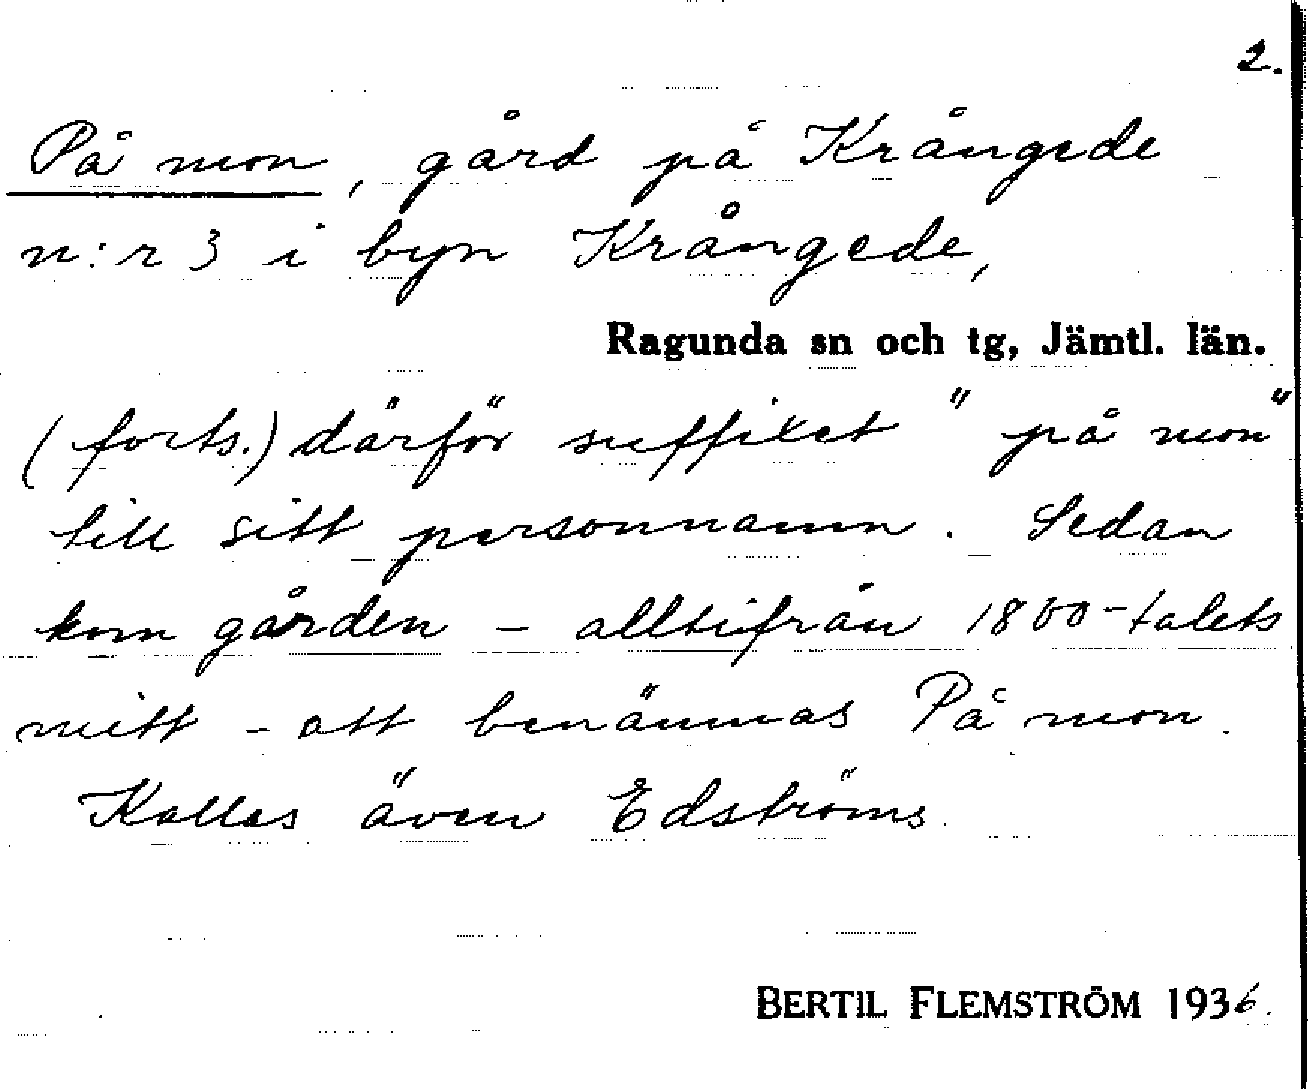 2.
På mon, gård på Krångede
n:r 3 i byn Krångede,
Ragunda sn och tg, Jämtl. län.
(forts.) därför suffixet "på mon"
till sitt personnamn. Sedan
kom gården - alltifrån 1800-talets
mitt - att benämnas På mon.
Kallas även Edströms.
BERTIL FLEMSTRÖM 1936.